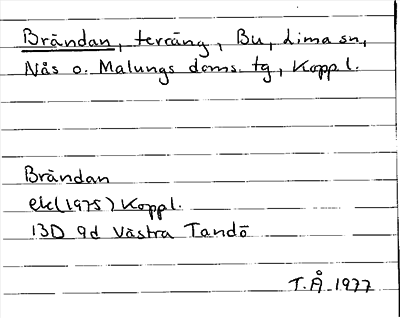 Brändan, terräng, Bu, Lima sn,
Nås o. Malungs doms. tg, Koppl.
Brändan
ek(1975) Koppl.
13D 9d Västra Tandö
T.Å. 1977